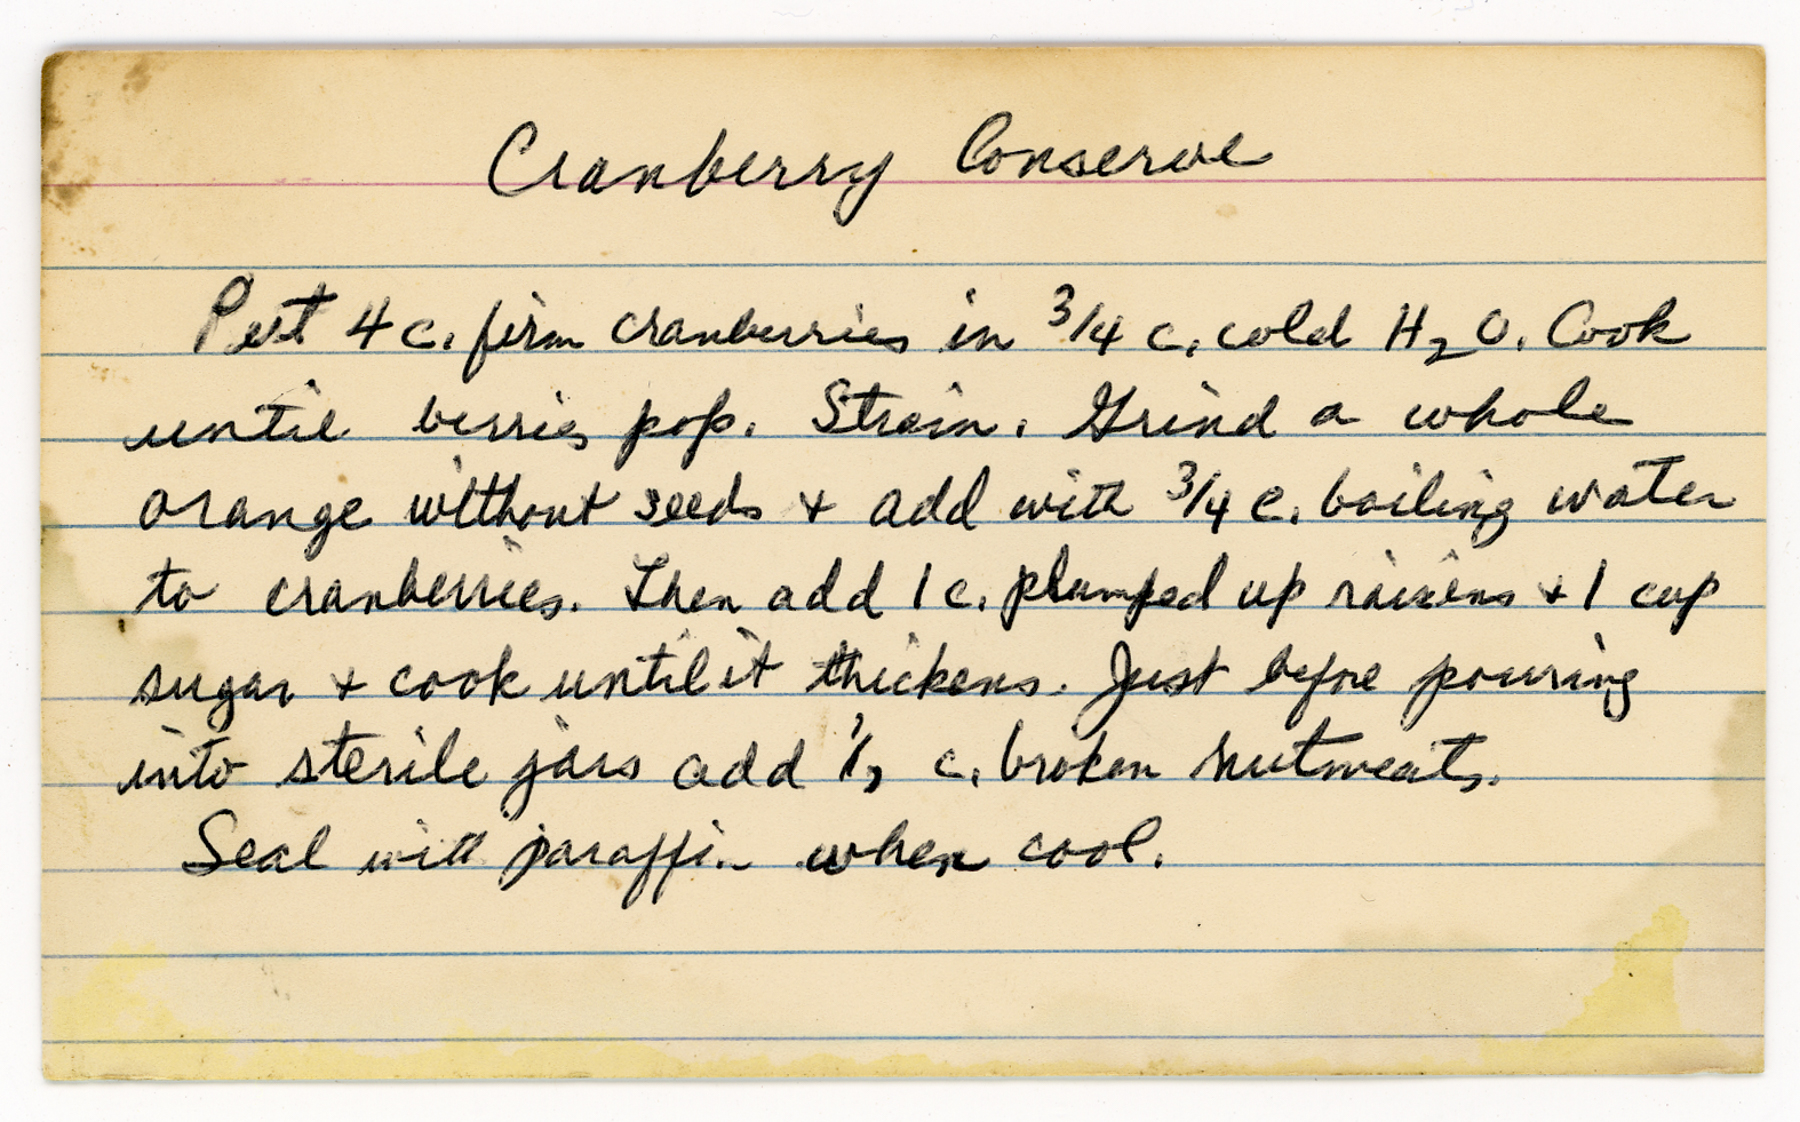 Cranberry Conserve
Put 4 c. firm cranberries in 3/4 c. cold H2O. Cook
until berries pop. Strain. Grind a whole
orange without seeds + add with 3/4 c. boiling water
to cranberries. Then add 1 c. plumped up raisins + 1 cup
sugar + cook until it thickens. Just before pouring
into sterile jars add c. broken nutmeats.
Seal with paraffin when cool.